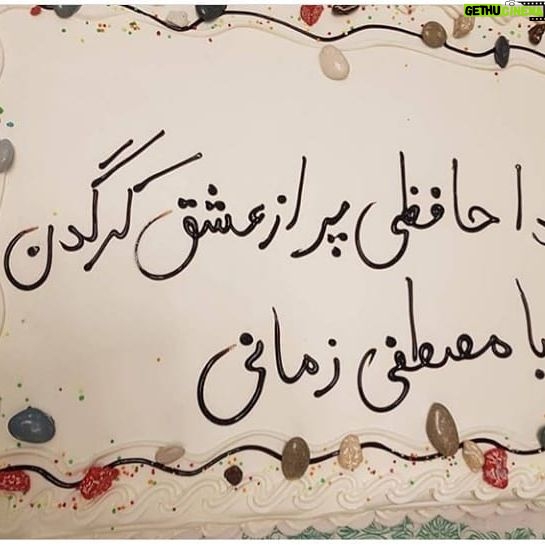 GETHU CINEMA
دا حافظی پر از عشق کرگدن
با مصطفی زمانی